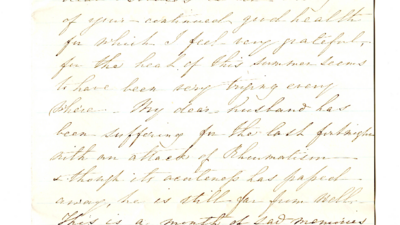 of your continued good health
for which I feel very grateful,
for the heat of this summer seems
to have been very trying every
where. My dear husband has
been suffering for the last fortnight
with an attack of Rheumatism
& though its acuteness has passed
away, he is still far from well.
This is a month of sad memories